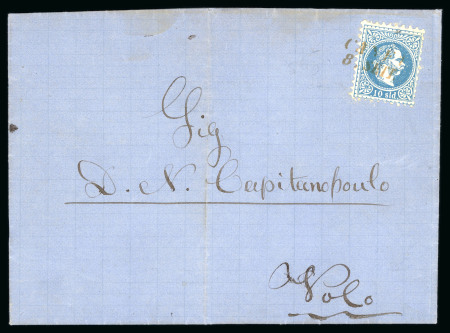 10 sld
Sig
D. N. Capitanopoulo
Volo